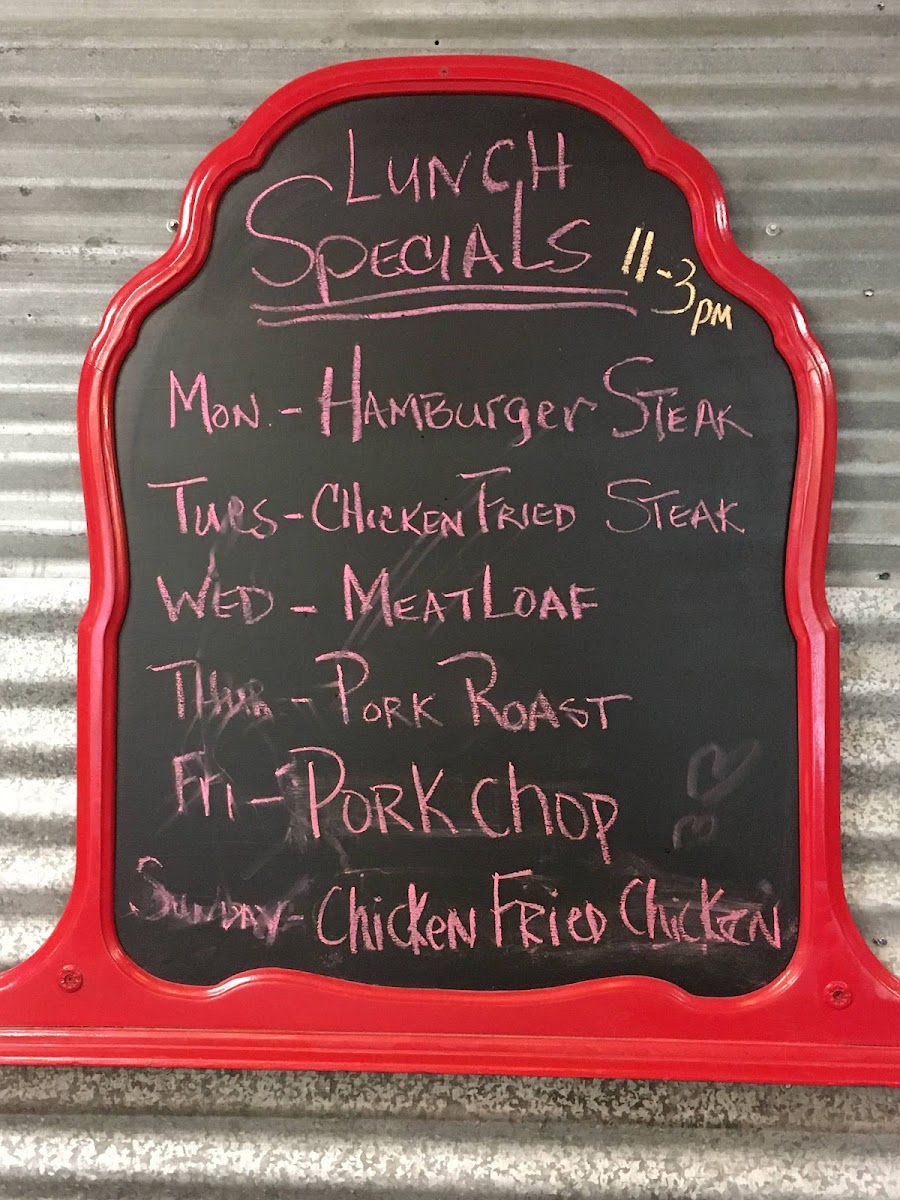 LUNCH
SPECIALS
11-3 pm
MON. - HAMBURGER STEAK
TUES - CHICKEN FRIED STEAK
WED - MEATLOAF
THUR - PORK ROAST
FRI - PORK CHOP
SUNDAY - CHICKEN FRIED CHICKEN